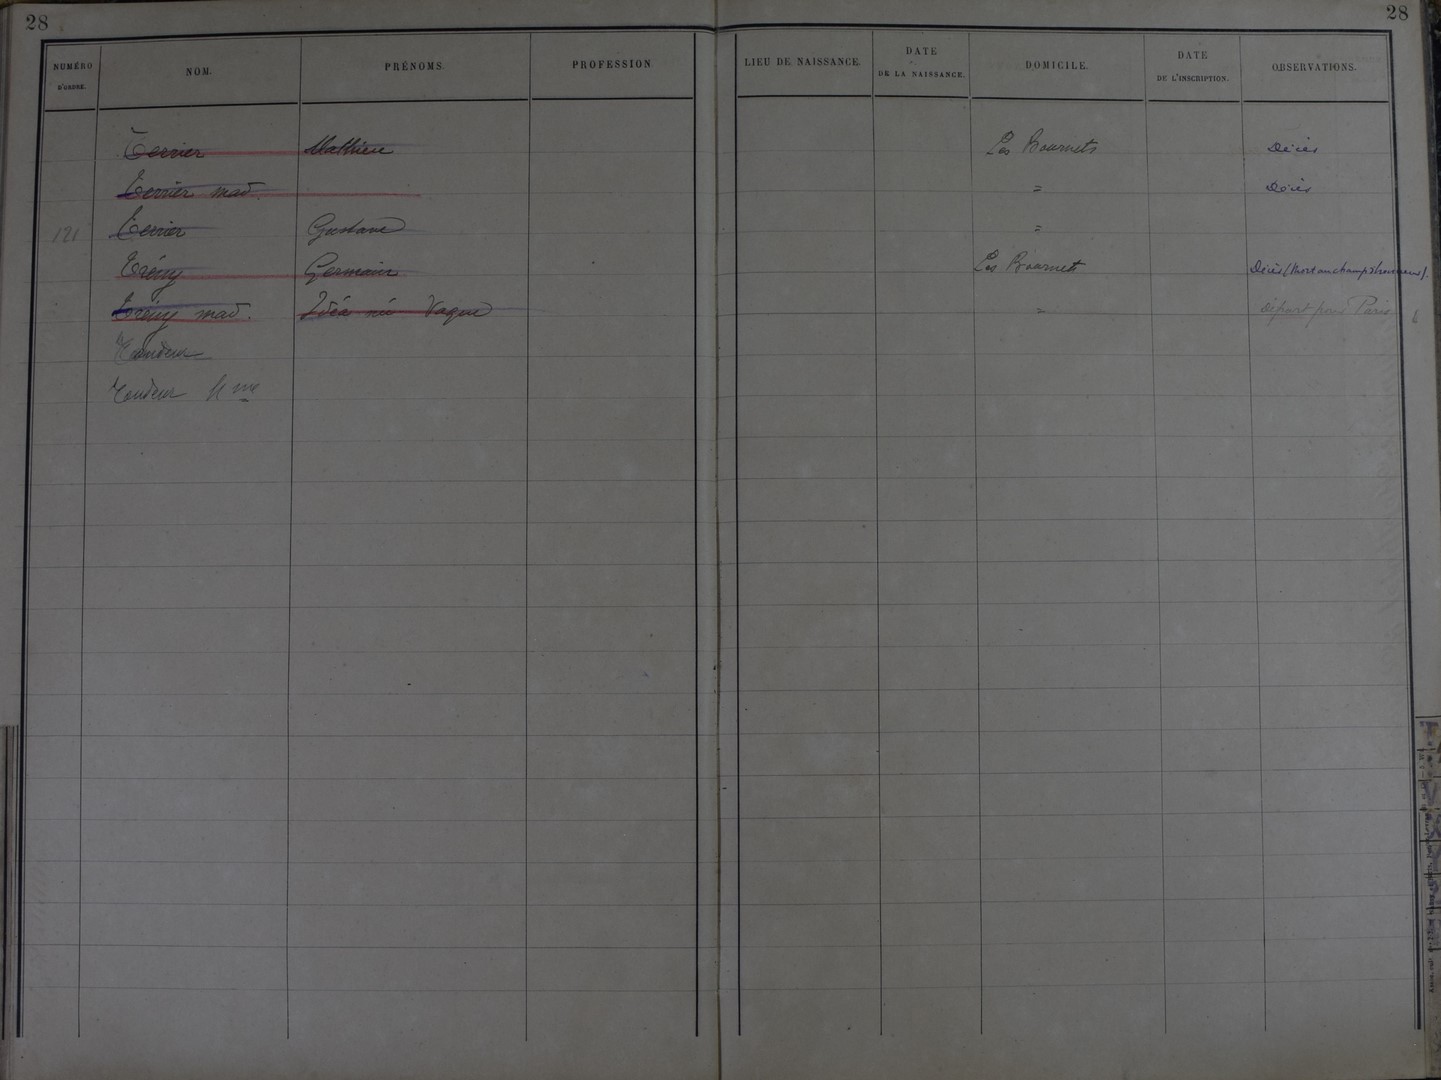 28 28
NUMÉRO D'ORDRE. NOM. PRÉNOMS. PROFESSION. LIEU DE NAISSANCE. DATE DE LA NAISSANCE. DOMICILE. DATE DE L'INSCRIPTION. OBSERVATIONS.
Terrier Mathieu Les Bournets Décès
Terrier mad. = Décès
121 Terrier Gustave =
Trény Germain Les Bournets Décès (Mort au champ d'honneur).
Trény mad. Idéa née Vaque = départ pour Paris
Tondeur
Tondeur Mme